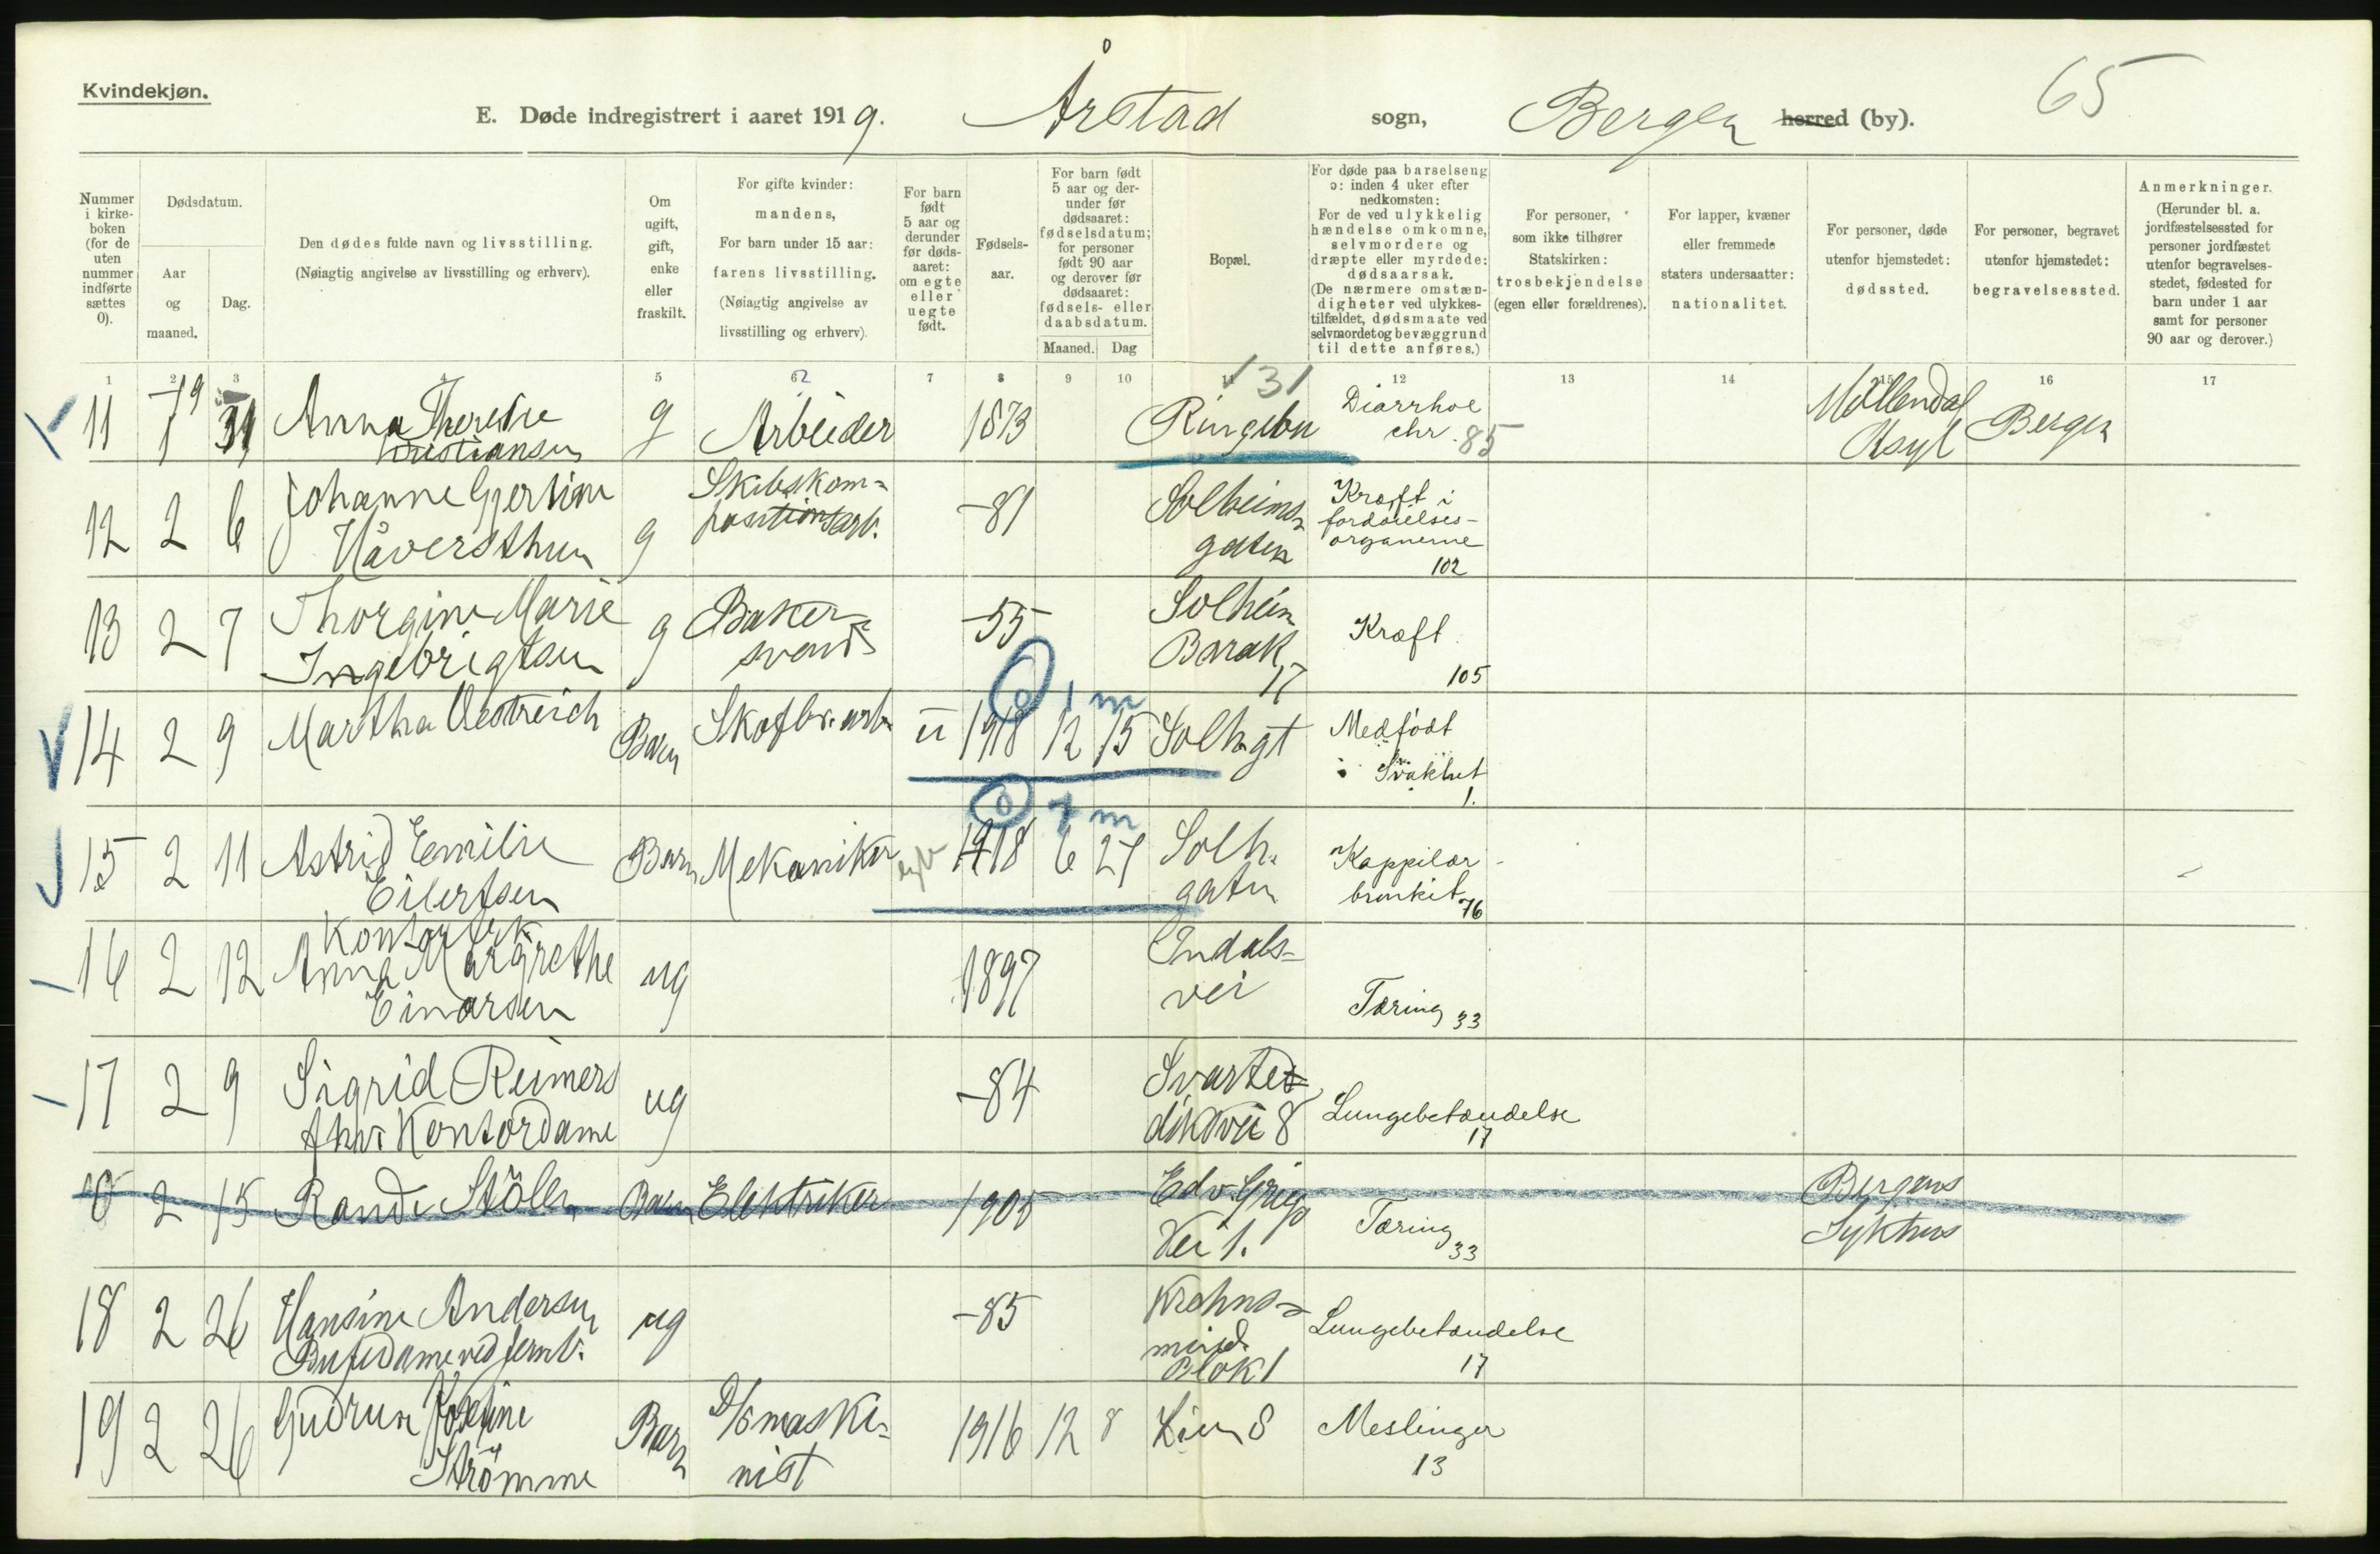 Kvindekjøn.
E. Døde indregistrert i aaret 1919. Årstad sogn, Bergen herred (by). 65
Nummer i kirkeboken (for de uten nummer indførte sættes 0).
Dødsdatum.
Aar og maaned.
Dag.
Den dødes fulde navn og livsstilling.
(Nøiagtig angivelse av livsstilling og erhverv).
Om ugift, gift, enke eller fraskilt.
For gifte kvinder: mandens,
For barn under 15 aar: farens livsstilling.
(Nøiagtig angivelse av livsstilling og erhverv).
For barn født 5 aar og derunder før dødsaaret: om egte eller uegte født.
Fødselsaar.
For barn født 5 aar og derunder før dødsaaret: fødselsdatum; for personer født 90 aar og derover før dødsaaret: fødsels- eller daabsdatum.
Maaned. Dag
Bopæl.
For døde paa barselseng ɔ: inden 4 uker efter nedkomsten:
For de ved ulykkelig hændelse omkomne, selvmordere og dræpte eller myrdede: dødsaarsak.
(De nærmere omstændigheter ved ulykkestilfældet, dødsmaate ved selvmordet og bevæggrund til dette anføres.)
For personer, som ikke tilhører Statskirken: trosbekjendelse (egen eller forældrenes).
For lapper, kvæner eller fremmede staters undersaatter: nationalitet.
For personer, døde utenfor hjemstedet: dødssted.
For personer, begravet utenfor hjemstedet: begravelsessted.
Anmerkninger.
(Herunder bl. a. jordfæstelsessted for personer jordfæstet utenfor begravelsesstedet, fødested for barn under 1 aar samt for personer 90 aar og derover.)
1 2 3 4 5 6 7 8 9 10 11 12 13 14 15 16 17
11 19 1 31 Anna Therese Kristiansen g Arbeider 1873 131 Ringebu Diarrhoe chr. 85 Möllendal Asyl Bergen
12 2 6 Johanne Gjertine Håversthun g Skibskompositionsarb. -81 Solheimsgaten Kræft i fordöielsesorganerne 102
13 2 7 Thorgine Marie Ingebrigtsen g Bakersvend -55 Solheim Barak 17 Kræft 105
14 2 9 Martha Oestreich Barn Skofbr.arb. u 1918 12 15 Solh.gt Medfödt Svakhet 1.
0 1 m
15 2 11 Astrid Emilie Eilertsen Barn Mekaniker egte 1918 6 27 Solh.gaten Kappilær bronkit 76
0 7 m
16 2 12 Kontorfrk. Anna Margrethe Einarsen ug 1897 Indalsvei Tæring 33
17 2 9 Sigrid Reimers fhv. Kontordame ug -84 Svartediksvei 8 Lungebetændelse 17
18 2 15 Randi Stölen Barn Elektriker 1905 Edv. Griegs Vei 1. Tæring 33 Bergens Sykehus
18 2 26 Hansine Andersen Bufedame ved Jernb. ug -85 Krohnsminde Blok 1 Lungebetændelse 17
19 2 26 Gudrun Josefine Strömme Barn D/S maskinist 1916 12 8 Lien 8 Meslinger 13